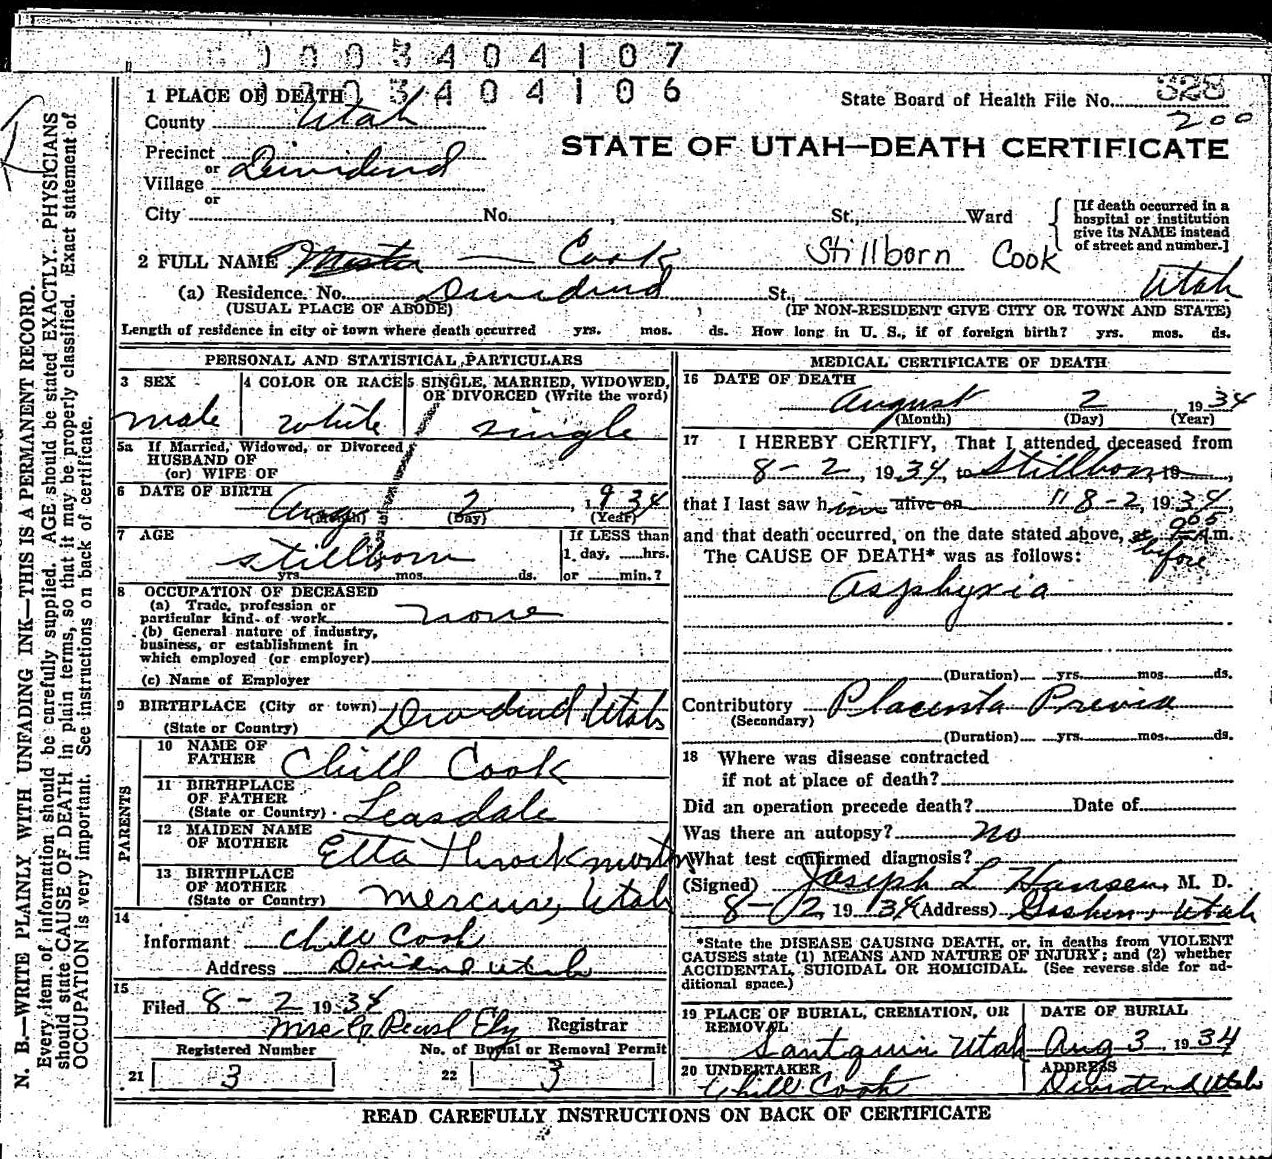 0003404107
0003404106
1 PLACE OF DEATH
State Board of Health File No. 328
200
County Utah
STATE OF UTAH—DEATH CERTIFICATE
Precinct
or Dividend
Village
or
City No. , St., Ward
[If death occurred in a hospital or institution give its NAME instead of street and number.]
2 FULL NAME Master — Cook Stillborn Cook
(a) Residence. No. Dividend St., Utah
(USUAL PLACE OF ABODE) (IF NON-RESIDENT GIVE CITY OR TOWN AND STATE)
Length of residence in city or town where death occurred yrs. mos. ds. How long in U. S., if of foreign birth? yrs. mos. ds.
PERSONAL AND STATISTICAL PARTICULARS
3 SEX
male
4 COLOR OR RACE
white
5 SINGLE, MARRIED, WIDOWED, OR DIVORCED (Write the word)
single
5a If Married, Widowed, or Divorced
HUSBAND OF
(or) WIFE OF
6 DATE OF BIRTH
Aug 2, 1934
(Month) (Day) (Year)
7 AGE
stillborn
yrs. mos. ds.
If LESS than
1 day, hrs.
or min.?
8 OCCUPATION OF DECEASED
(a) Trade, profession or
particular kind of work none
(b) General nature of industry,
business, or establishment in
which employed (or employer)
(c) Name of Employer
9 BIRTHPLACE (City or town) Dividend, Utah
(State or Country)
PARENTS
10 NAME OF FATHER Chill Cook
11 BIRTHPLACE OF FATHER Leasdale
(State or Country)
12 MAIDEN NAME OF MOTHER Etta Throckmorton
13 BIRTHPLACE OF MOTHER Mercur, Utah
(State or Country)
14
Informant Chill Cook
Address Dividend Utah
15
Filed 8-2 1934
Mrs. G. Pearl Ely Registrar
Registered Number
21 3
No. of Burial or Removal Permit
22 3
MEDICAL CERTIFICATE OF DEATH
16 DATE OF DEATH
August 2 1934
(Month) (Day) (Year)
17 I HEREBY CERTIFY, That I attended deceased from
8-2, 1934, to Stillborn, 19
that I last saw him alive on " 8-2, 1934,
and that death occurred, on the date stated above, at 9:05 A.m.
before
The CAUSE OF DEATH* was as follows:
Asphyxia
(Duration) yrs. mos. ds.
Contributory Placenta Previa
(Secondary)
(Duration) yrs. mos. ds.
18 Where was disease contracted
if not at place of death?
Did an operation precede death? Date of
Was there an autopsy? no
What test confirmed diagnosis?
(Signed) Joseph L Hansen, M. D.
8-2 1934 (Address) Goshen, Utah
*State the DISEASE CAUSING DEATH, or, in deaths from VIOLENT
CAUSES state (1) MEANS AND NATURE OF INJURY; and (2) whether
ACCIDENTAL, SUICIDAL OR HOMICIDAL. (See reverse side for ad-
ditional space.)
19 PLACE OF BURIAL, CREMATION, OR REMOVAL
Santquin Utah
DATE OF BURIAL
Aug 3, 1934
20 UNDERTAKER
Chill Cook
ADDRESS
Dividend Utah
READ CAREFULLY INSTRUCTIONS ON BACK OF CERTIFICATE
N. B.—WRITE PLAINLY WITH UNFADING INK—THIS IS A PERMANENT RECORD.
Every item of information should be carefully supplied. AGE should be stated EXACTLY. PHYSICIANS
should state CAUSE OF DEATH in plain terms, so that it may be properly classified. Exact statement of
OCCUPATION is very important. See instructions on back of certificate.